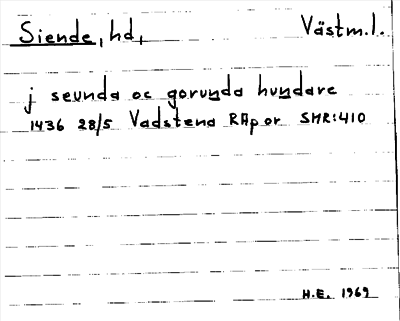 Siende, hd, Västm.l.
j seunda oc gorunda hundare
1436 28/5 Vadstena RAp or SMR:410
H.E. 1969